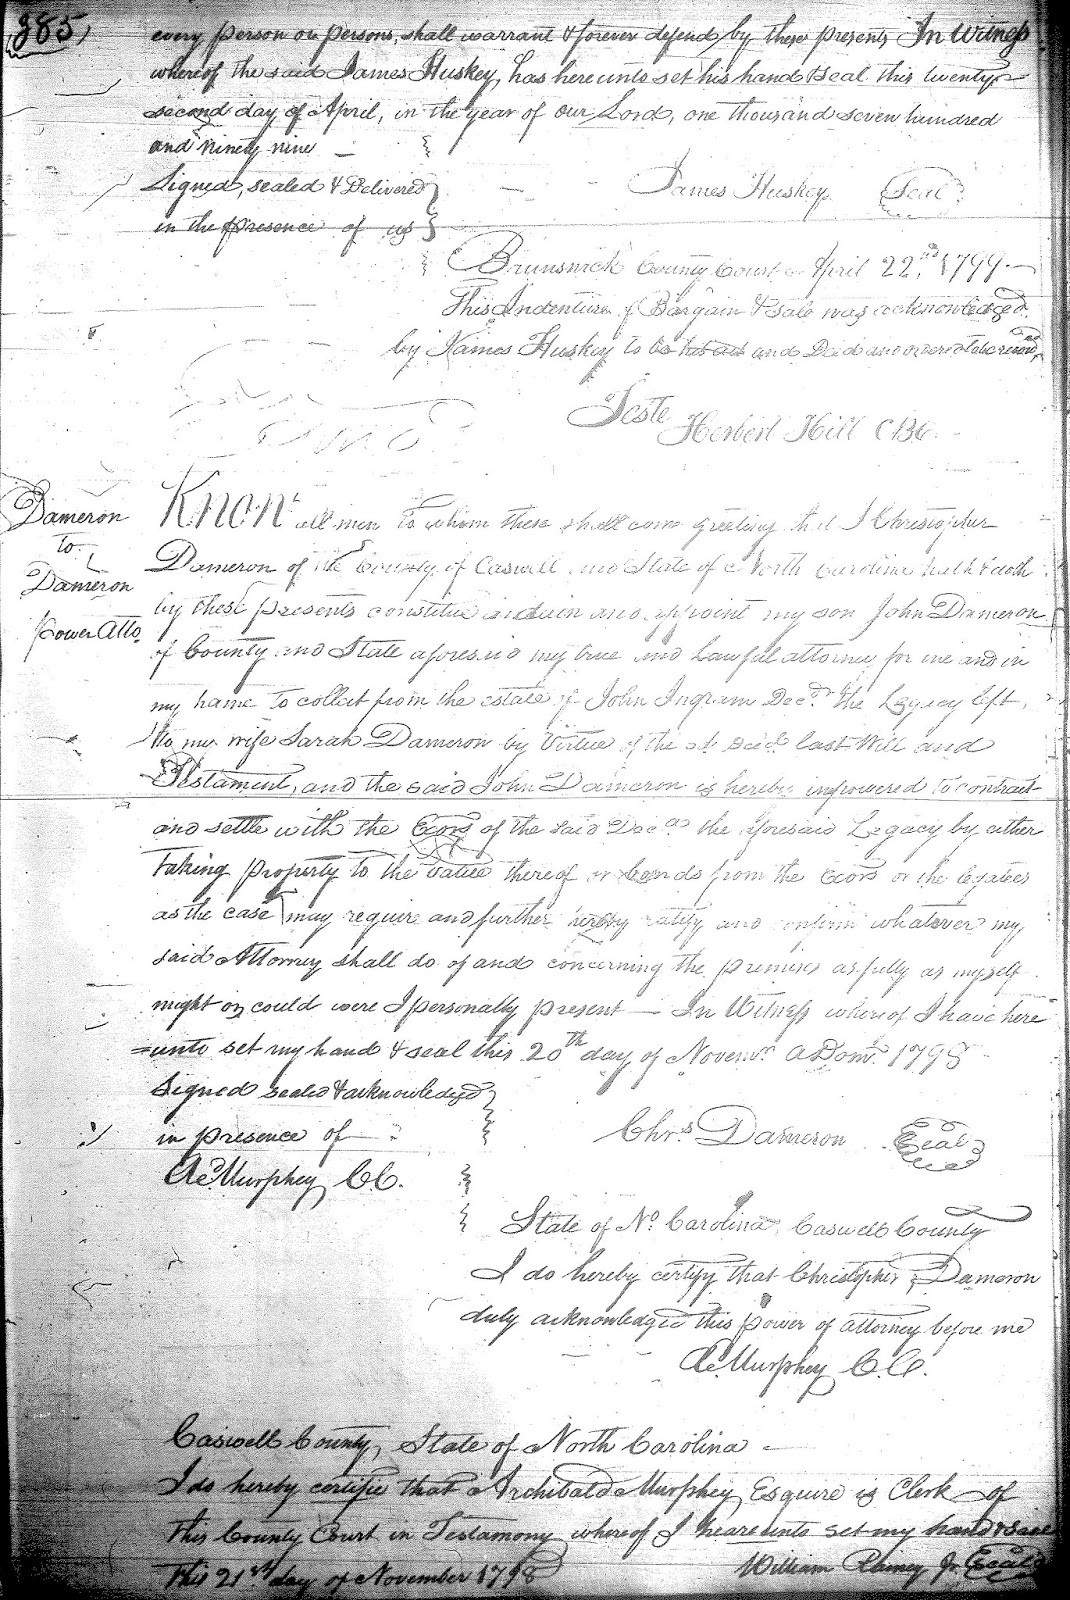 385
every person or persons, shall warrant & forever defend by these presents In Witness
whereof the said James Huskey, has hereunto set his hand & seal this twenty
second day of April, in the year of our Lord, one thousand seven hundred
and ninety nine
Signed, sealed & Delivered
in the presence of us
James Huskey Seal
Brunswick County Court April 22nd 1799
This Indenture of Bargain & sale was acknowledged
by James Huskey to be his act and Deed and ordered to be record
Teste
Herbert Hill CBC
Dameron
to
Dameron
Power Atto
Know all men to whom these shall come greeting that I Christopher
Dameron of the County of Caswell and State of North Carolina hath & doth
by these presents constitute ordain and appoint my son John Dameron
of County and State aforesaid my true and Lawful attorney for me and in
my name to collect from the estate of John Ingram Decd. the Legacy left
to my wife Sarah Dameron by Virtue of the sd Decd last Will and
Testament, and the said John Dameron is hereby impowered to contract
and settle with the Exors of the said Decd the aforesaid Legacy by either
Taking property to the value thereof or bonds from the Exors or the legatees
as the case may require and further hereby ratify and confirm whatever my
said Attorney shall do of and concerning the premises as fully as myself
might or could were I personally present — In Witness whereof I have here
=unto set my hand & seal this 20th day of Novemr. ADom. 1798
Signed sealed & acknowledged
in presence of
Ae. Murphey C.C.
Chrs. Dameron Seal
State of No. Carolina Caswell County
I do hereby certify that Christopher Dameron
duly acknowledged this power of attorney before me
Ae. Murphey C.C.
Caswell County, State of North Carolina
I do hereby certifie that Archibald Murphey Esquire is Clerk of
this County Court in Testamony whereof I heareunto set my hand & Seal
this 21st day of November 1798
William Rainey Jr. Seal